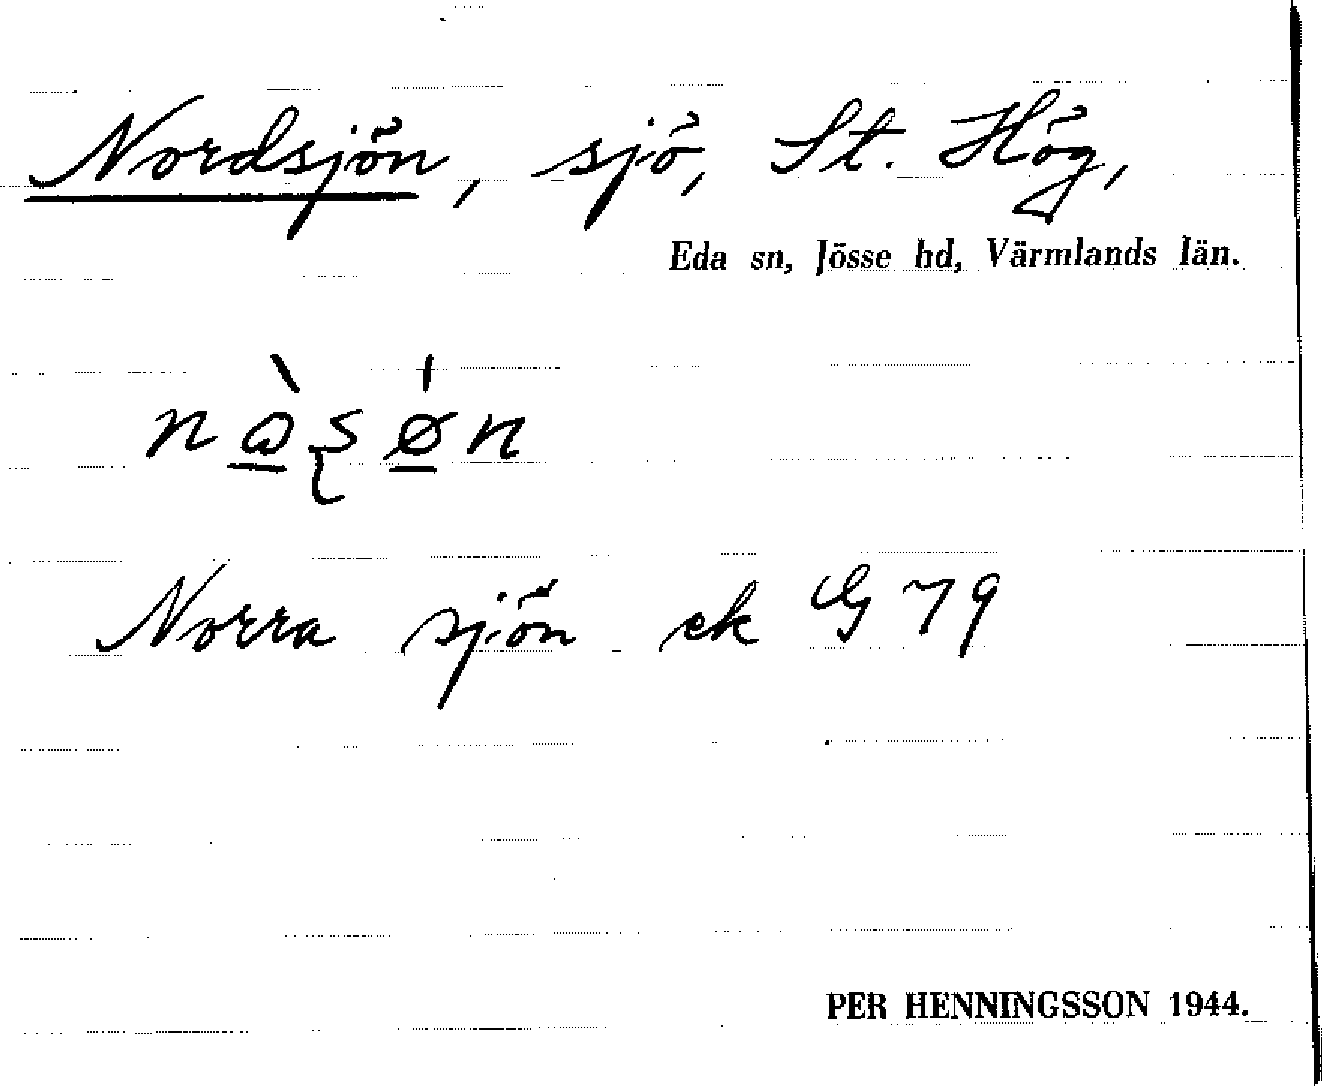 Nordsjön, sjö, St. Hög,
Eda sn, Jösse hd, Värmlands län.
Norra sjön ek G 79
PER HENNINGSSON 1944.